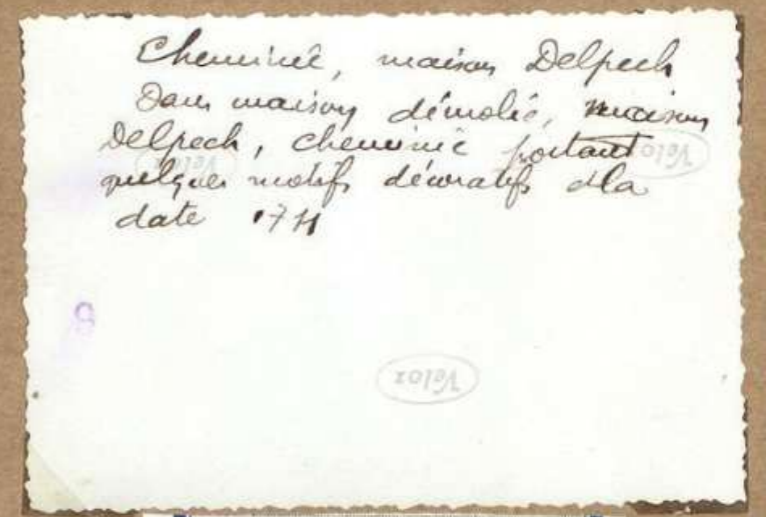 Cheminée, maison Delpech
Dans maison démolie, maison
Delpech, cheminée portant
quelques motifs décoratifs et la
date
Velox
Velox
Velox